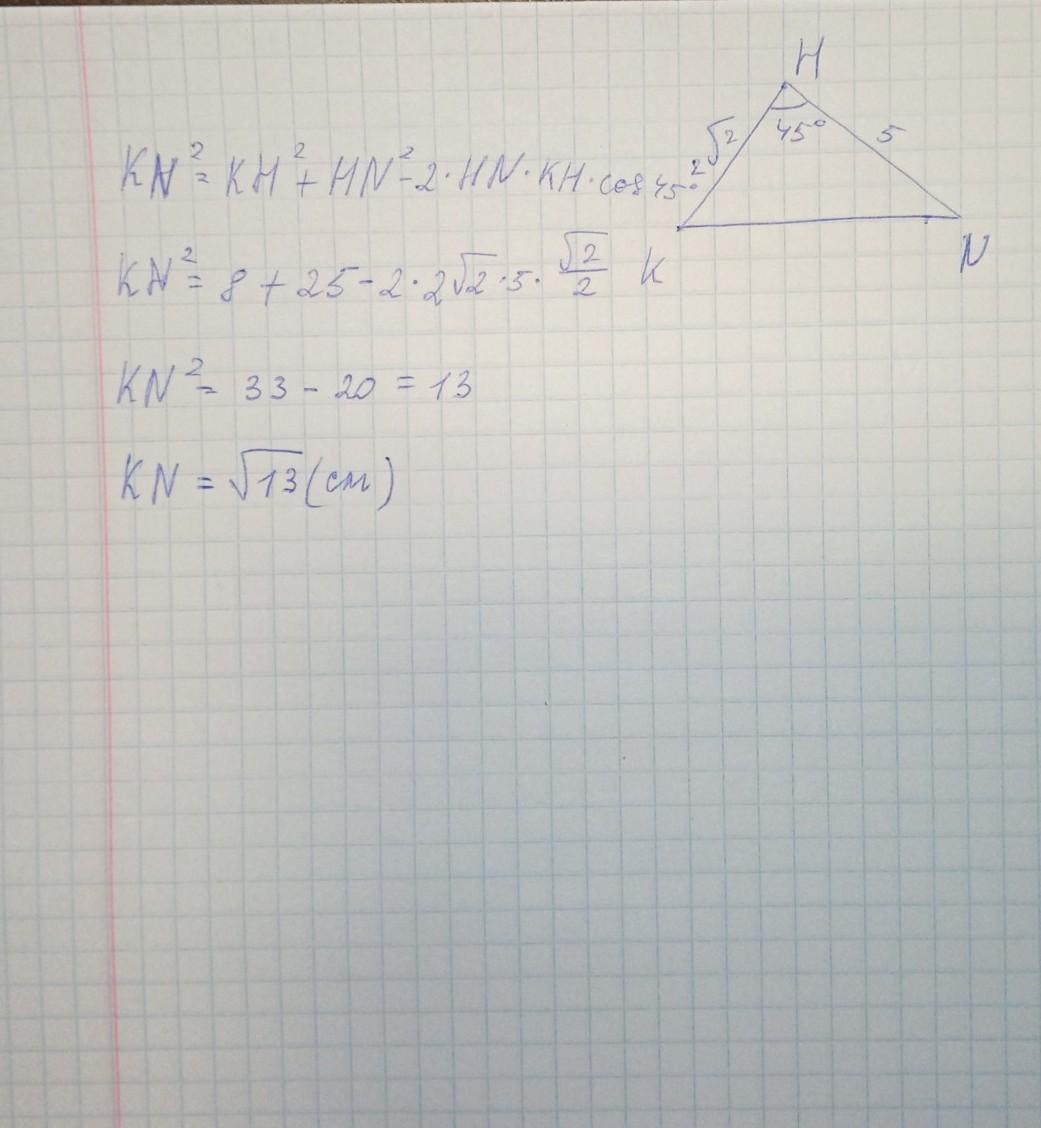 H
2√2
45°
5
KN² = KH² + HN² - 2·HN·KH·cos 45°
K
N
KN² = 8 + 25 - 2·2√2·5·√2/2
KN² = 33 - 20 = 13
KN = √13 (см)